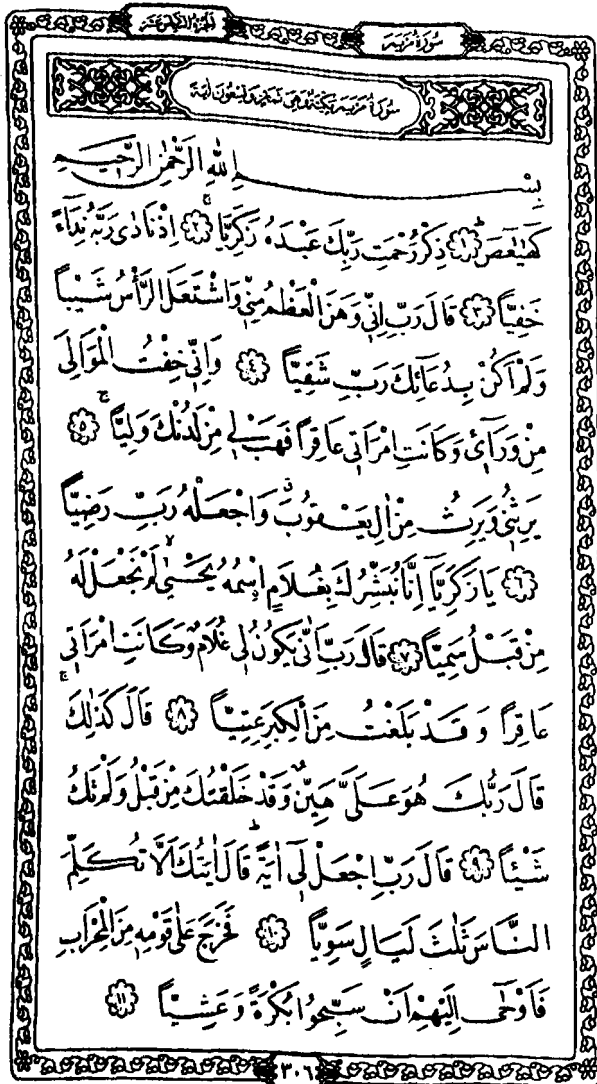 الجزء السادس عشر
سورة مريم
سورة مريم مكية وهي ثمان وتسعون اية
بِسْمِ اللهِ الرَّحْمٰنِ الرَّحِيمِ
كٓهٰيٰعٓصٓ ﴿١﴾ ذِكْرُ رَحْمَتِ رَبِّكَ عَبْدَهُ زَكَرِيَّا ﴿٢﴾ اِذْ نَادٰى رَبَّهُ نِدَٓاءً
خَفِيًّا ﴿٣﴾ قَالَ رَبِّ اِنّٖى وَهَنَ الْعَظْمُ مِنّٖى وَاشْتَعَلَ الرَّأْسُ شَيْبًا
وَلَمْ اَكُنْ بِدُعَٓائِكَ رَبِّ شَقِيًّا ﴿٤﴾ وَاِنّٖى خِفْتُ الْمَوَالِىَ
مِنْ وَرَٓائٖى وَكَانَتِ امْرَاَتٖى عَاقِرًا فَهَبْ لٖى مِنْ لَدُنْكَ وَلِيًّا ﴿٥﴾
يَرِثُنٖى وَيَرِثُ مِنْ اٰلِ يَعْقُوبَ وَاجْعَلْهُ رَبِّ رَضِيًّا
﴿٦﴾ يَا زَكَرِيَّٓا اِنَّا نُبَشِّرُكَ بِغُلَامٍ اِسْمُهُ يَحْيٰى لَمْ نَجْعَلْ لَهُ
مِنْ قَبْلُ سَمِيًّا ﴿٧﴾ قَالَ رَبِّ اَنّٰى يَكُونُ لٖى غُلَامٌ وَكَانَتِ امْرَاَتٖى
عَاقِرًا وَقَدْ بَلَغْتُ مِنَ الْكِبَرِ عِتِيًّا ﴿٨﴾ قَالَ كَذٰلِكَ
قَالَ رَبُّكَ هُوَ عَلَىَّ هَيِّنٌ وَقَدْ خَلَقْتُكَ مِنْ قَبْلُ وَلَمْ تَكُ
شَيْئًا ﴿٩﴾ قَالَ رَبِّ اجْعَلْ لٖٓى اٰيَةً قَالَ اٰيَتُكَ اَلَّا تُكَلِّمَ
النَّاسَ ثَلٰثَ لَيَالٍ سَوِيًّا ﴿١٠﴾ فَخَرَجَ عَلٰى قَوْمِهٖ مِنَ الْمِحْرَابِ
فَاَوْحٰٓى اِلَيْهِمْ اَنْ سَبِّحُوا بُكْرَةً وَعَشِيًّا ﴿١١﴾
٣٠٦